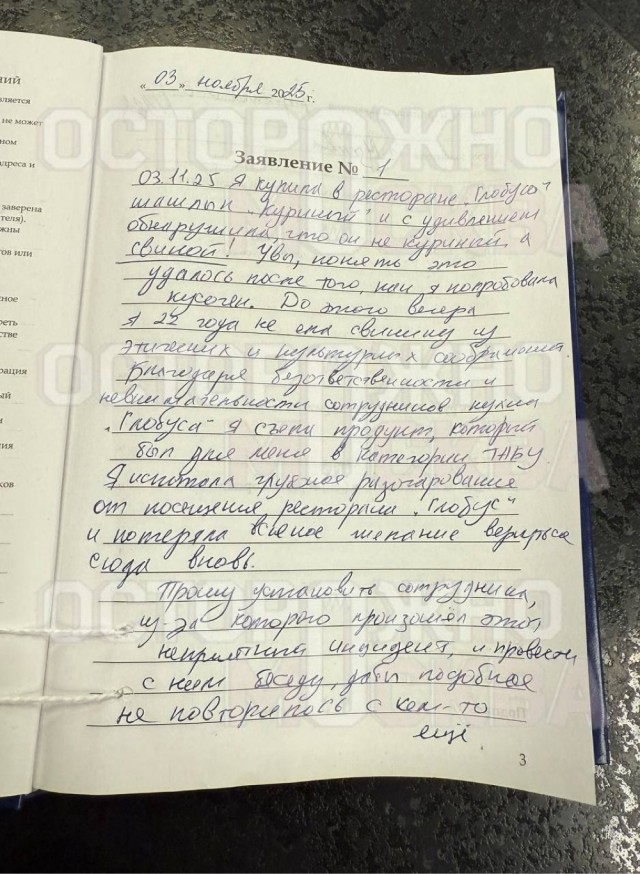 ний
ляется
не может
ном
дреса и
заверена
теля).
жны
тов или
ное
реть
стве
рация
ый
и
ния
ков
«03» ноября 2025 г.
Заявление № 1
03.11.25 Я купила в ресторане „Глобус"
шашлык „Куриный" и с удивлением
обнаружила, что он не куриный, а
свиной! Увы, понять это
удалось после того, как я попробовала
кусочек. До этого вечера
я 22 года не ела свинину из
этических и культурных соображений.
Благодаря безответственности и
невнимательности сотрудников кухни
„Глобуса" я съела продукт, который
был для меня в категории ТАБУ.
Я испытала глубокое разочарование
от посещения ресторана „Глобус"
и потеряла всякое желание вернуться
сюда вновь.
Прошу установить сотрудника,
из-за которого произошёл этот
неприятный инцидент, и провести
с ним беседу, дабы подобное
не повторилось с кем-то
ещё.
3
ОСТОРОЖНО
ОСТОРОЖНО
ОСТОРОЖНО